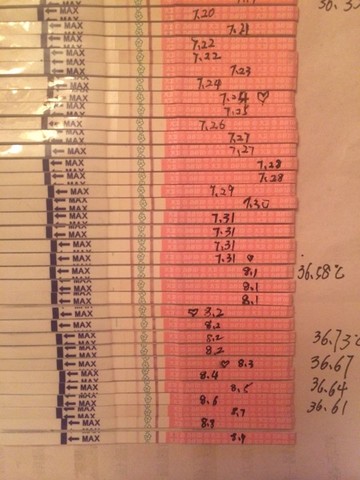 MAX 7.20
MAX 7.21
MAX 7.22
MAX 7.22
MAX 7.23
MAX 7.24
MAX 7.24 ♡
MAX 7.25
MAX 7.26
MAX 7.27
MAX 7.27
MAX 7.28
MAX 7.28
MAX 7.29
MAX 7.30
MAX 7.31
MAX 7.31
MAX 7.31
MAX 7.31 ♡
MAX 8.1 36.58℃
MAX 8.1
MAX 8.1
MAX ♡ 8.2
MAX 8.2
MAX 8.2 36.73℃
MAX 8.2
MAX ♡ 8.3 36.67
MAX 8.4
MAX 8.5 36.64
MAX 8.6
MAX 8.7 36.61
MAX 8.8
MAX 8.9